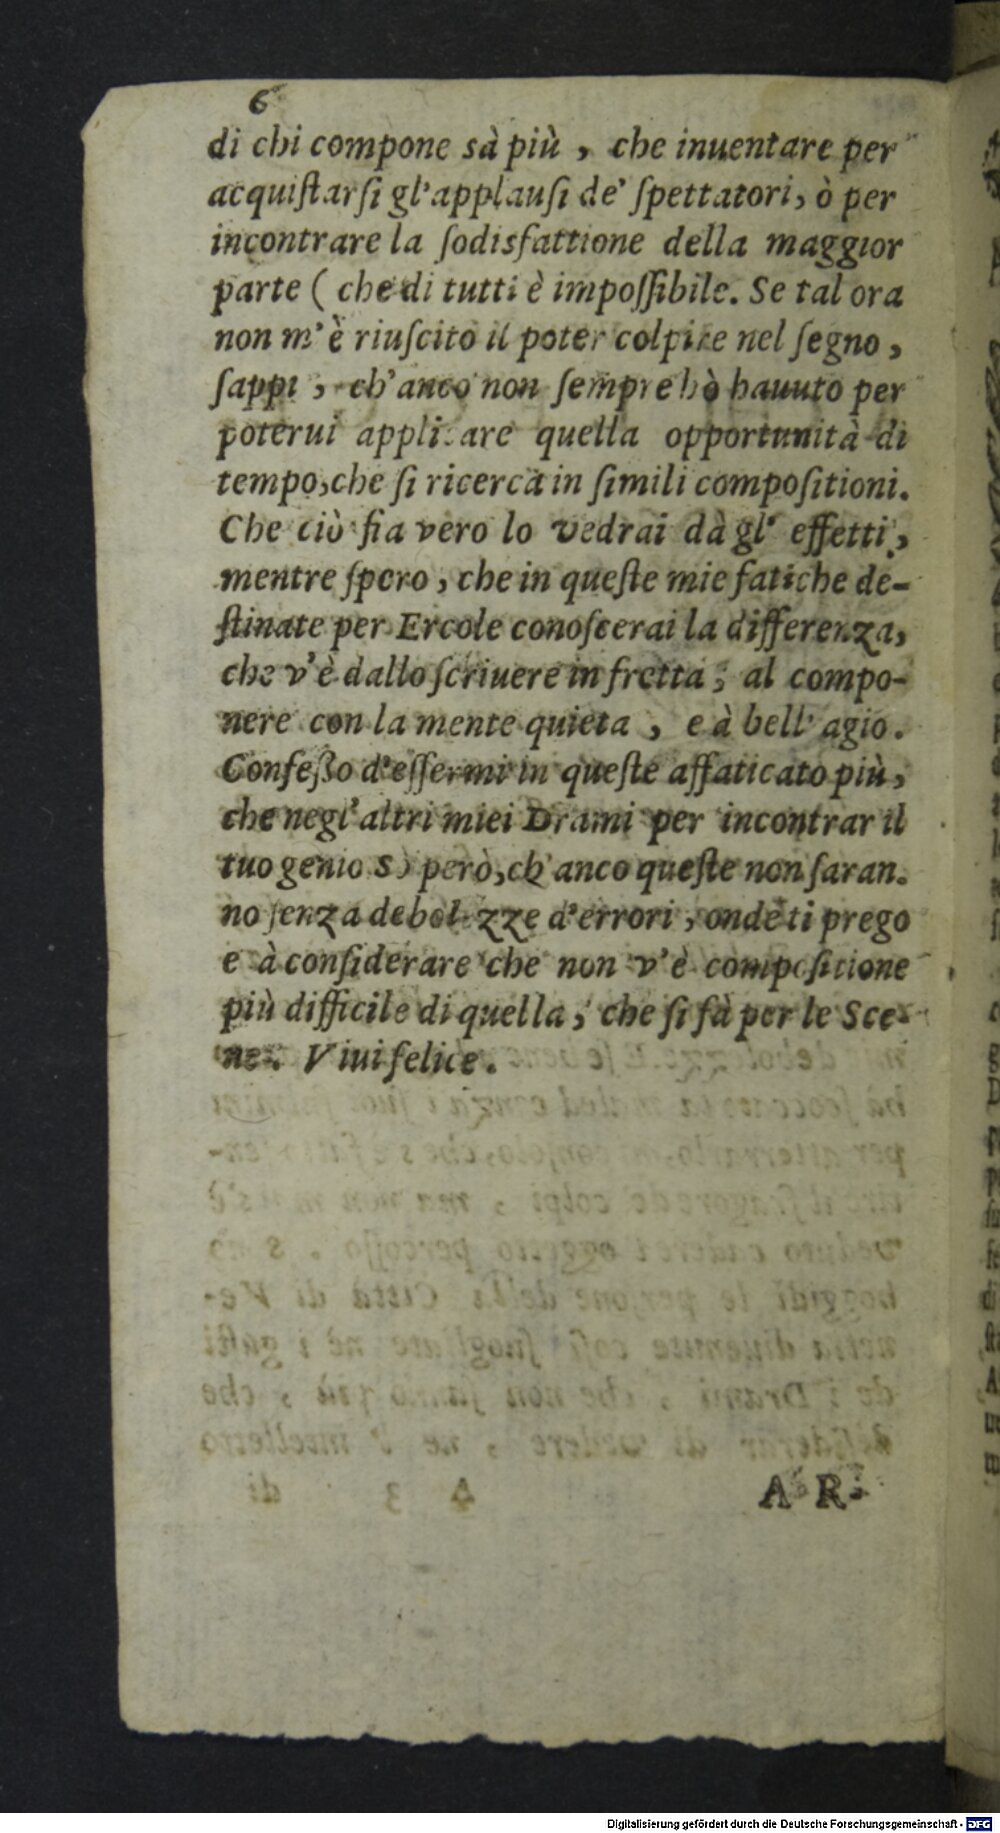 6
di chi compone sà più, che inuentare per
acquiſtarſi gl'applauſi de' ſpettatori, ò per
incontrare la ſodisfattione della maggior
parte ( che di tutti è impoſſibile. Se tal ora
non m'è riuſcito il poter colpire nel ſegno,
ſappi, ch'anco non ſempre hò hauuto per
poterui applicare quella opportunità di
tempo, che ſi ricerca in ſimili compoſitioni.
Che ciò ſia vero lo vedrai dà gl' effetti,
mentre ſpero, che in queſte mie fatiche de-
ſtinate per Ercole conoſcerai la differenza,
che v'è dallo ſcriuere in fretta; al compo-
nere con la mente quieta, e à bell' agio.
Confeßo d'eſſermi in queſte affaticato più,
che negl'altri miei Drami per incontrar il
tuo genio Sò però, ch'anco queſte non ſaran.
no ſenza debolezze d'errori, onde ti prego
e à conſiderare che non v'è compoſitione
più difficile di quella, che ſi fà per le Sce-
ne. Viui felice.
AR-
Digitalisierung gefördert durch die Deutsche Forschungsgemeinschaft - DFG